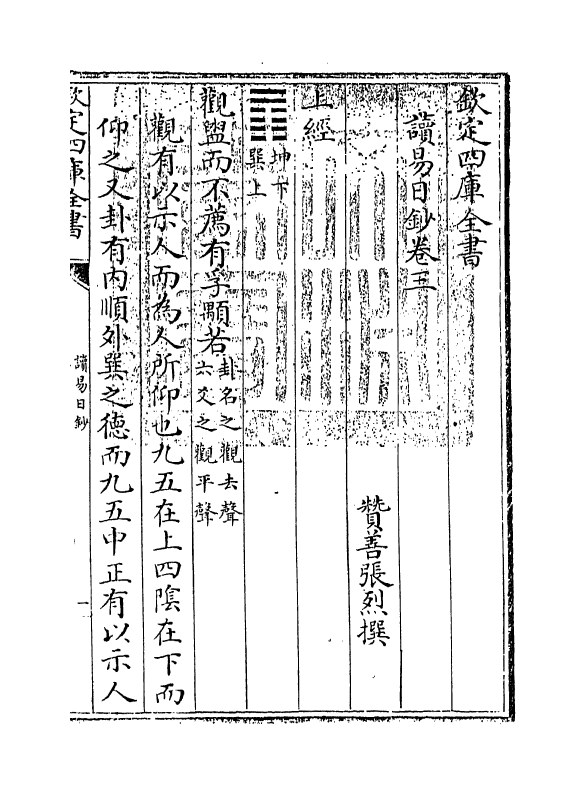 欽定四庫全書
讀易日鈔卷五
贊善張烈撰
上經
坤下
巽上
觀盥而不薦有孚顒若卦名之觀去聲
六爻之觀平聲
觀有以示人而為人所仰也九五在上四陰在下而
仰之又卦有内順外巽之德而九五中正有以示人
欽定四庫全書
讀易日鈔
一